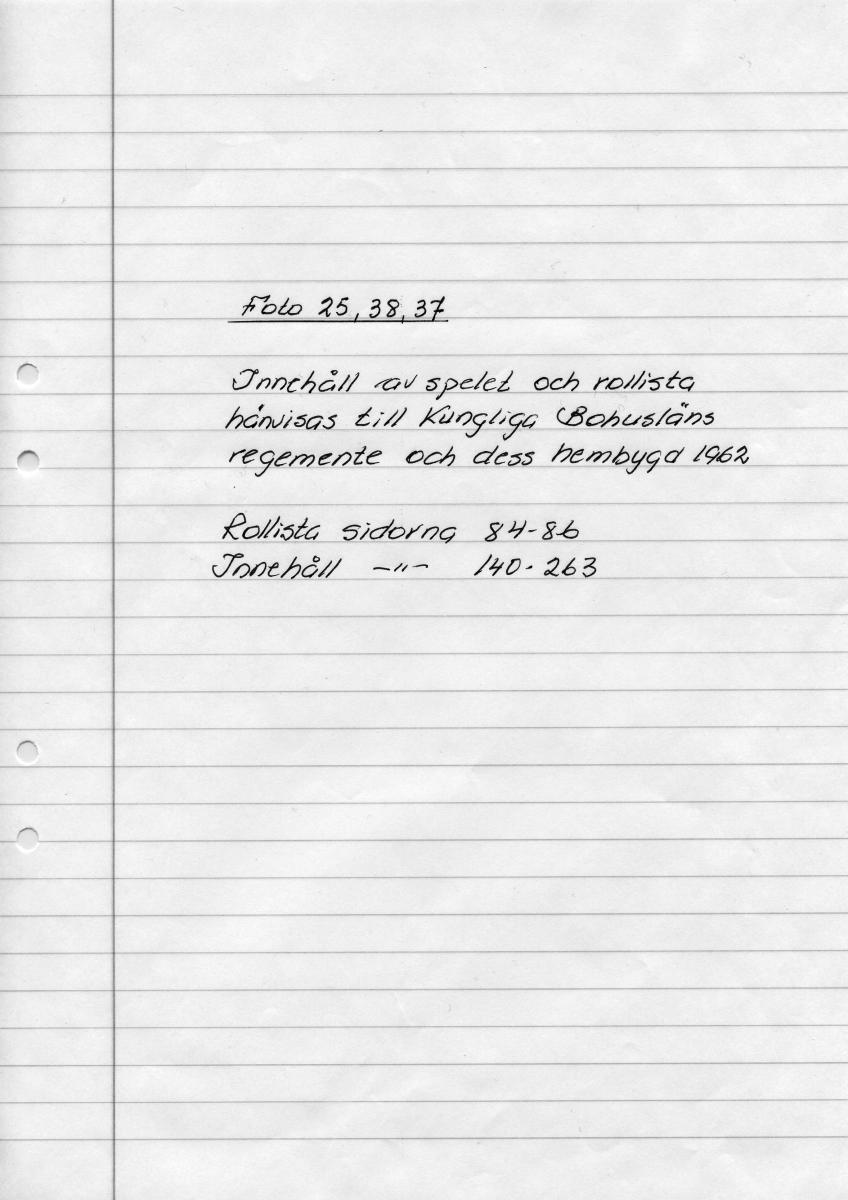 Foto 25, 38, 37
Innehåll av spelet och rollista
hänvisas till Kungliga Bohusläns
regemente och dess hembygd 1962
Rollista sidorna 84-86
Innehåll -"- 140-263